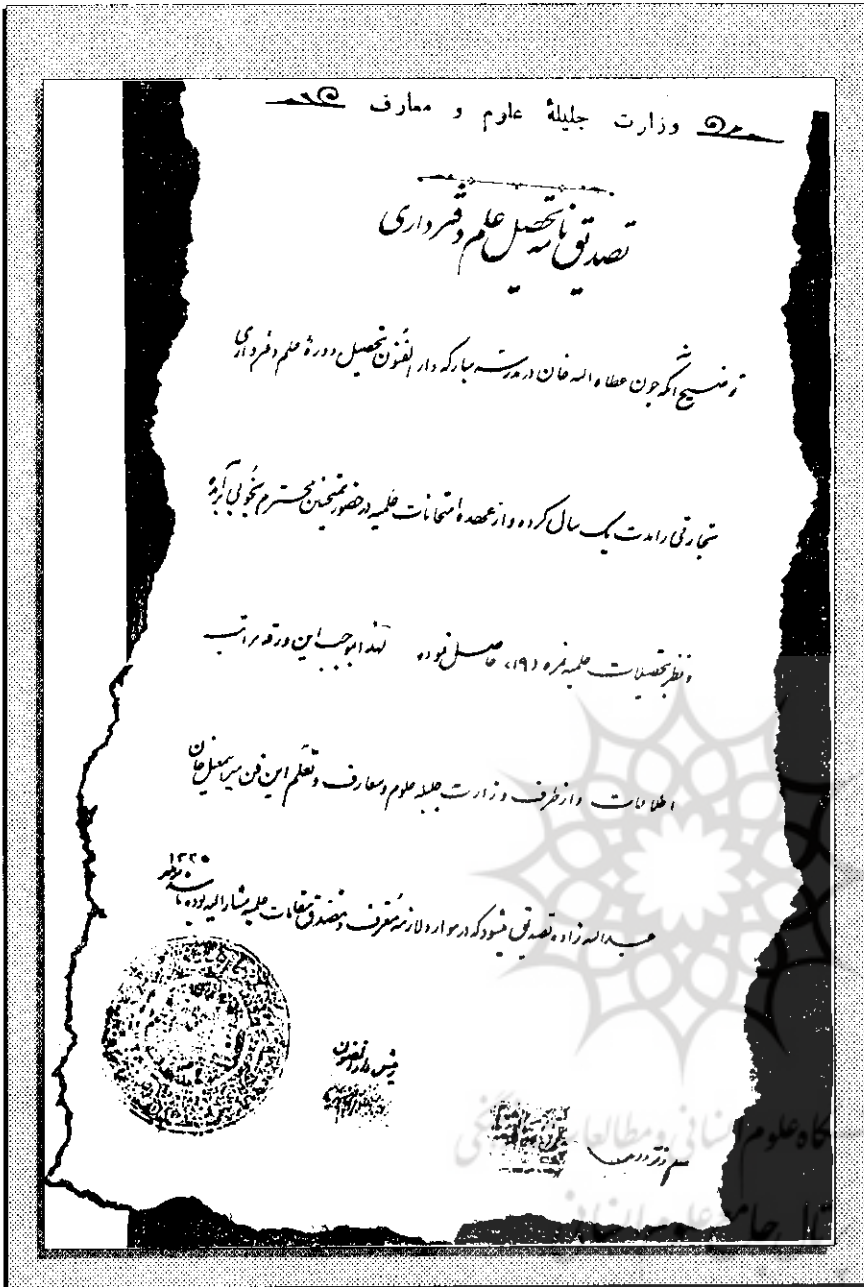 وزارت جلیلهٔ علوم و معارف
تصدیق نامه تحصیل علم دفترداری
توضیح آنکه چون عطاءالله خان در مدرسه مبارکه دارالفنون تحصیل دورهٔ علم دفترداری
تجارتی را مدت یک سال کرده و از عهدهٔ امتحانات علمیه در حضور ممتحنین محترم بخوبی برآمده
و نظر بتحصیلات علمیه نمره (۱۹) حاصل نموده لهذا بموجب این ورقه مراتب
اطلاعات و از طرف وزارت جلیله علوم و معارف و تعلم این فن میر اسمعیل خان
عبدالله زاده تصدیق میشود که در موارد لازمه معرف و مصدق مقامات علمیه مشارالیه بوده باشد
۱۳۳۵
رئیس دارالفنون
معلم دفترداری
گاه علوم انسانی و مطالعات فرهنگی
جامع علوم انسانی